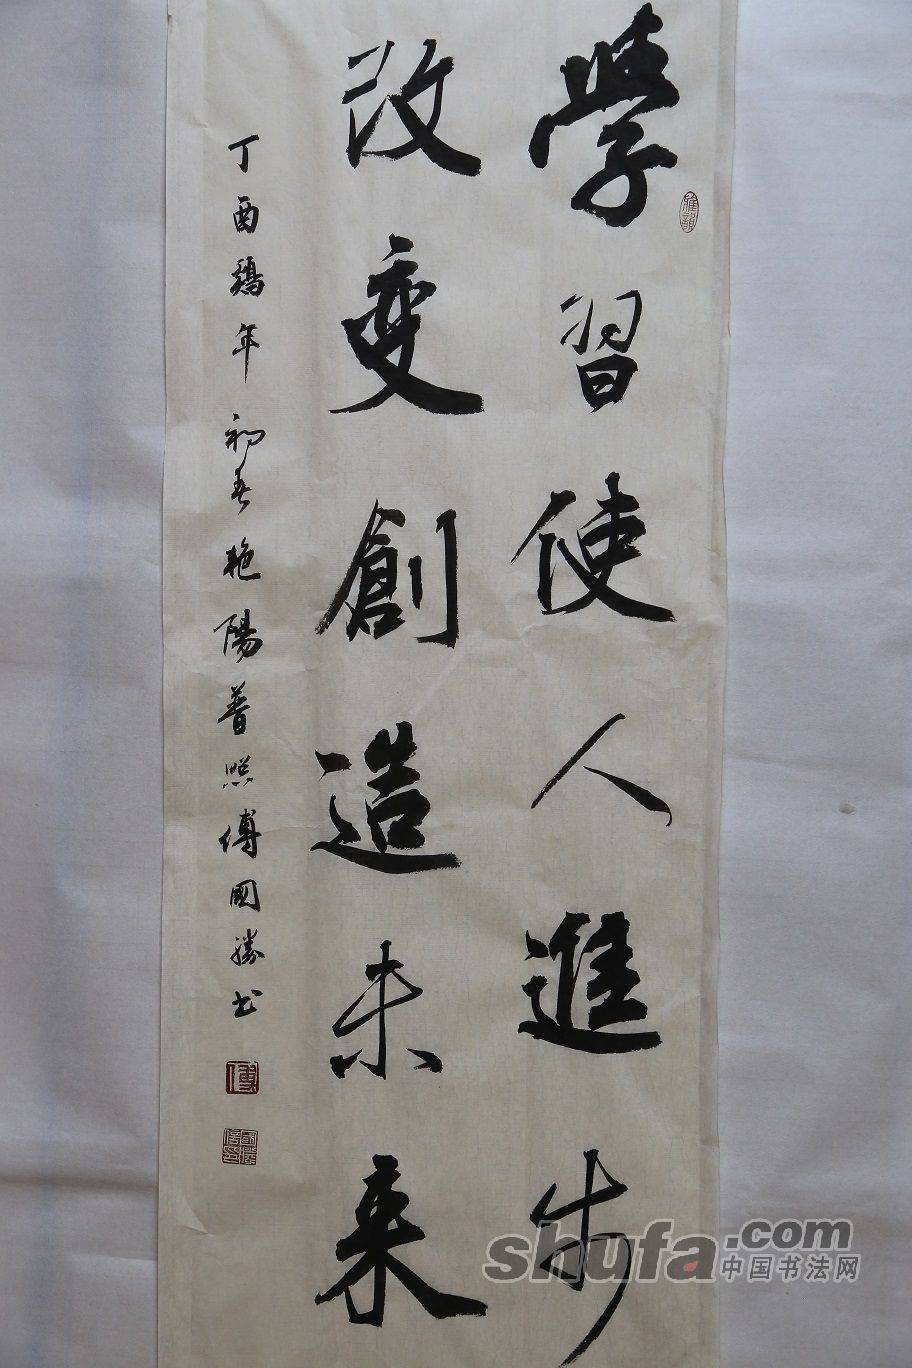 學習使人進步
改变創造未来
丁酉鷄年初春艳陽普照傅國勝书
雅韻
傅
shufa.com
中国书法网